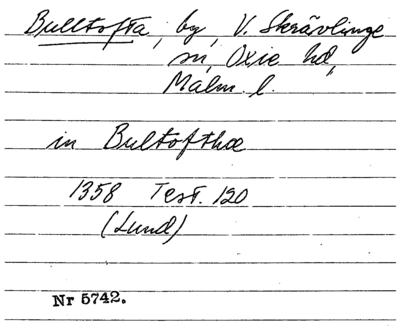 Bulltofta, by, V. Skrävlinge
sn, Oxie hd,
Malm. l.
in Bultofthæ
1358 Test. 120
(Lund)
Nr 5742.